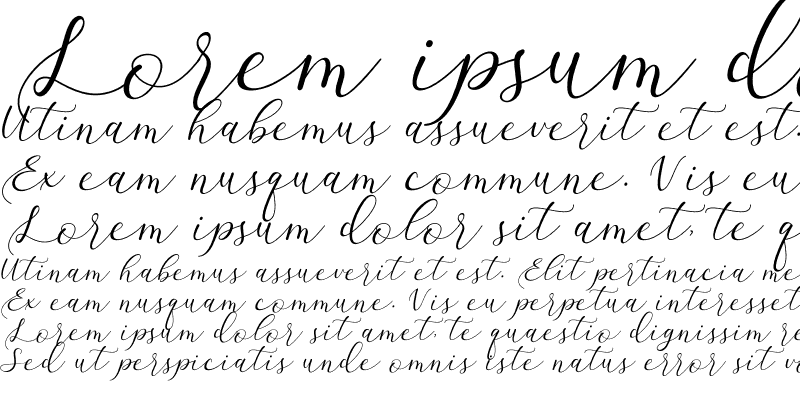 Lorem ipsum d
Utinam habemus assueverit et est.
Ex eam nusquam commune. Vis eu
Lorem ipsum dolor sit amet, te q
Utinam habemus assueverit et est. Elit pertinacia me
Ex eam nusquam commune. Vis eu perpetua interesset
Lorem ipsum dolor sit amet, te quaestio dignissim re
Sed ut perspiciatis unde omnis iste natus error sit vo